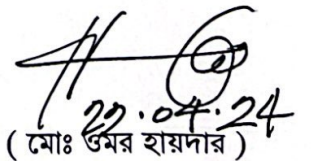 22.04.24
( মোঃ ওমর হায়দার )